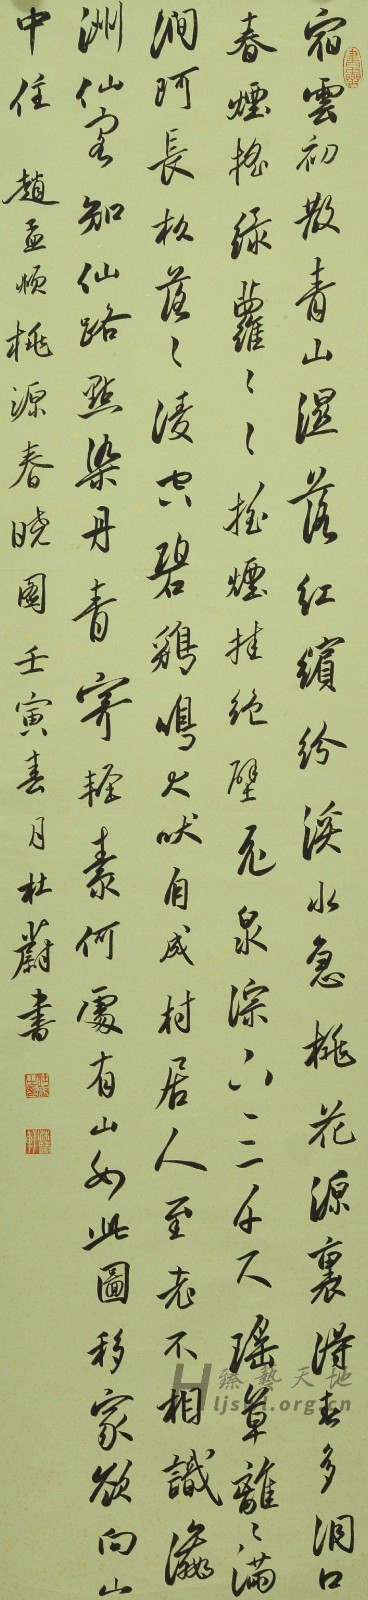 宿雲初散青山濕落紅繽紛溪水急桃花源裏得春多洞口
春煙搖綠蘿〻〻搖煙挂絶壁飛泉淙下三千尺瑤草離〻滿
澗阿長松落〻凌空碧鷄鳴犬吠自成村居人至老不相識瀛
洲仙客知仙路點染丹青寄輕素何處有山如此圖移家欲向山
中住 趙孟頫桃源春曉圖壬寅春月杜蔚書
臻藝天地
ljsysl.org.cn